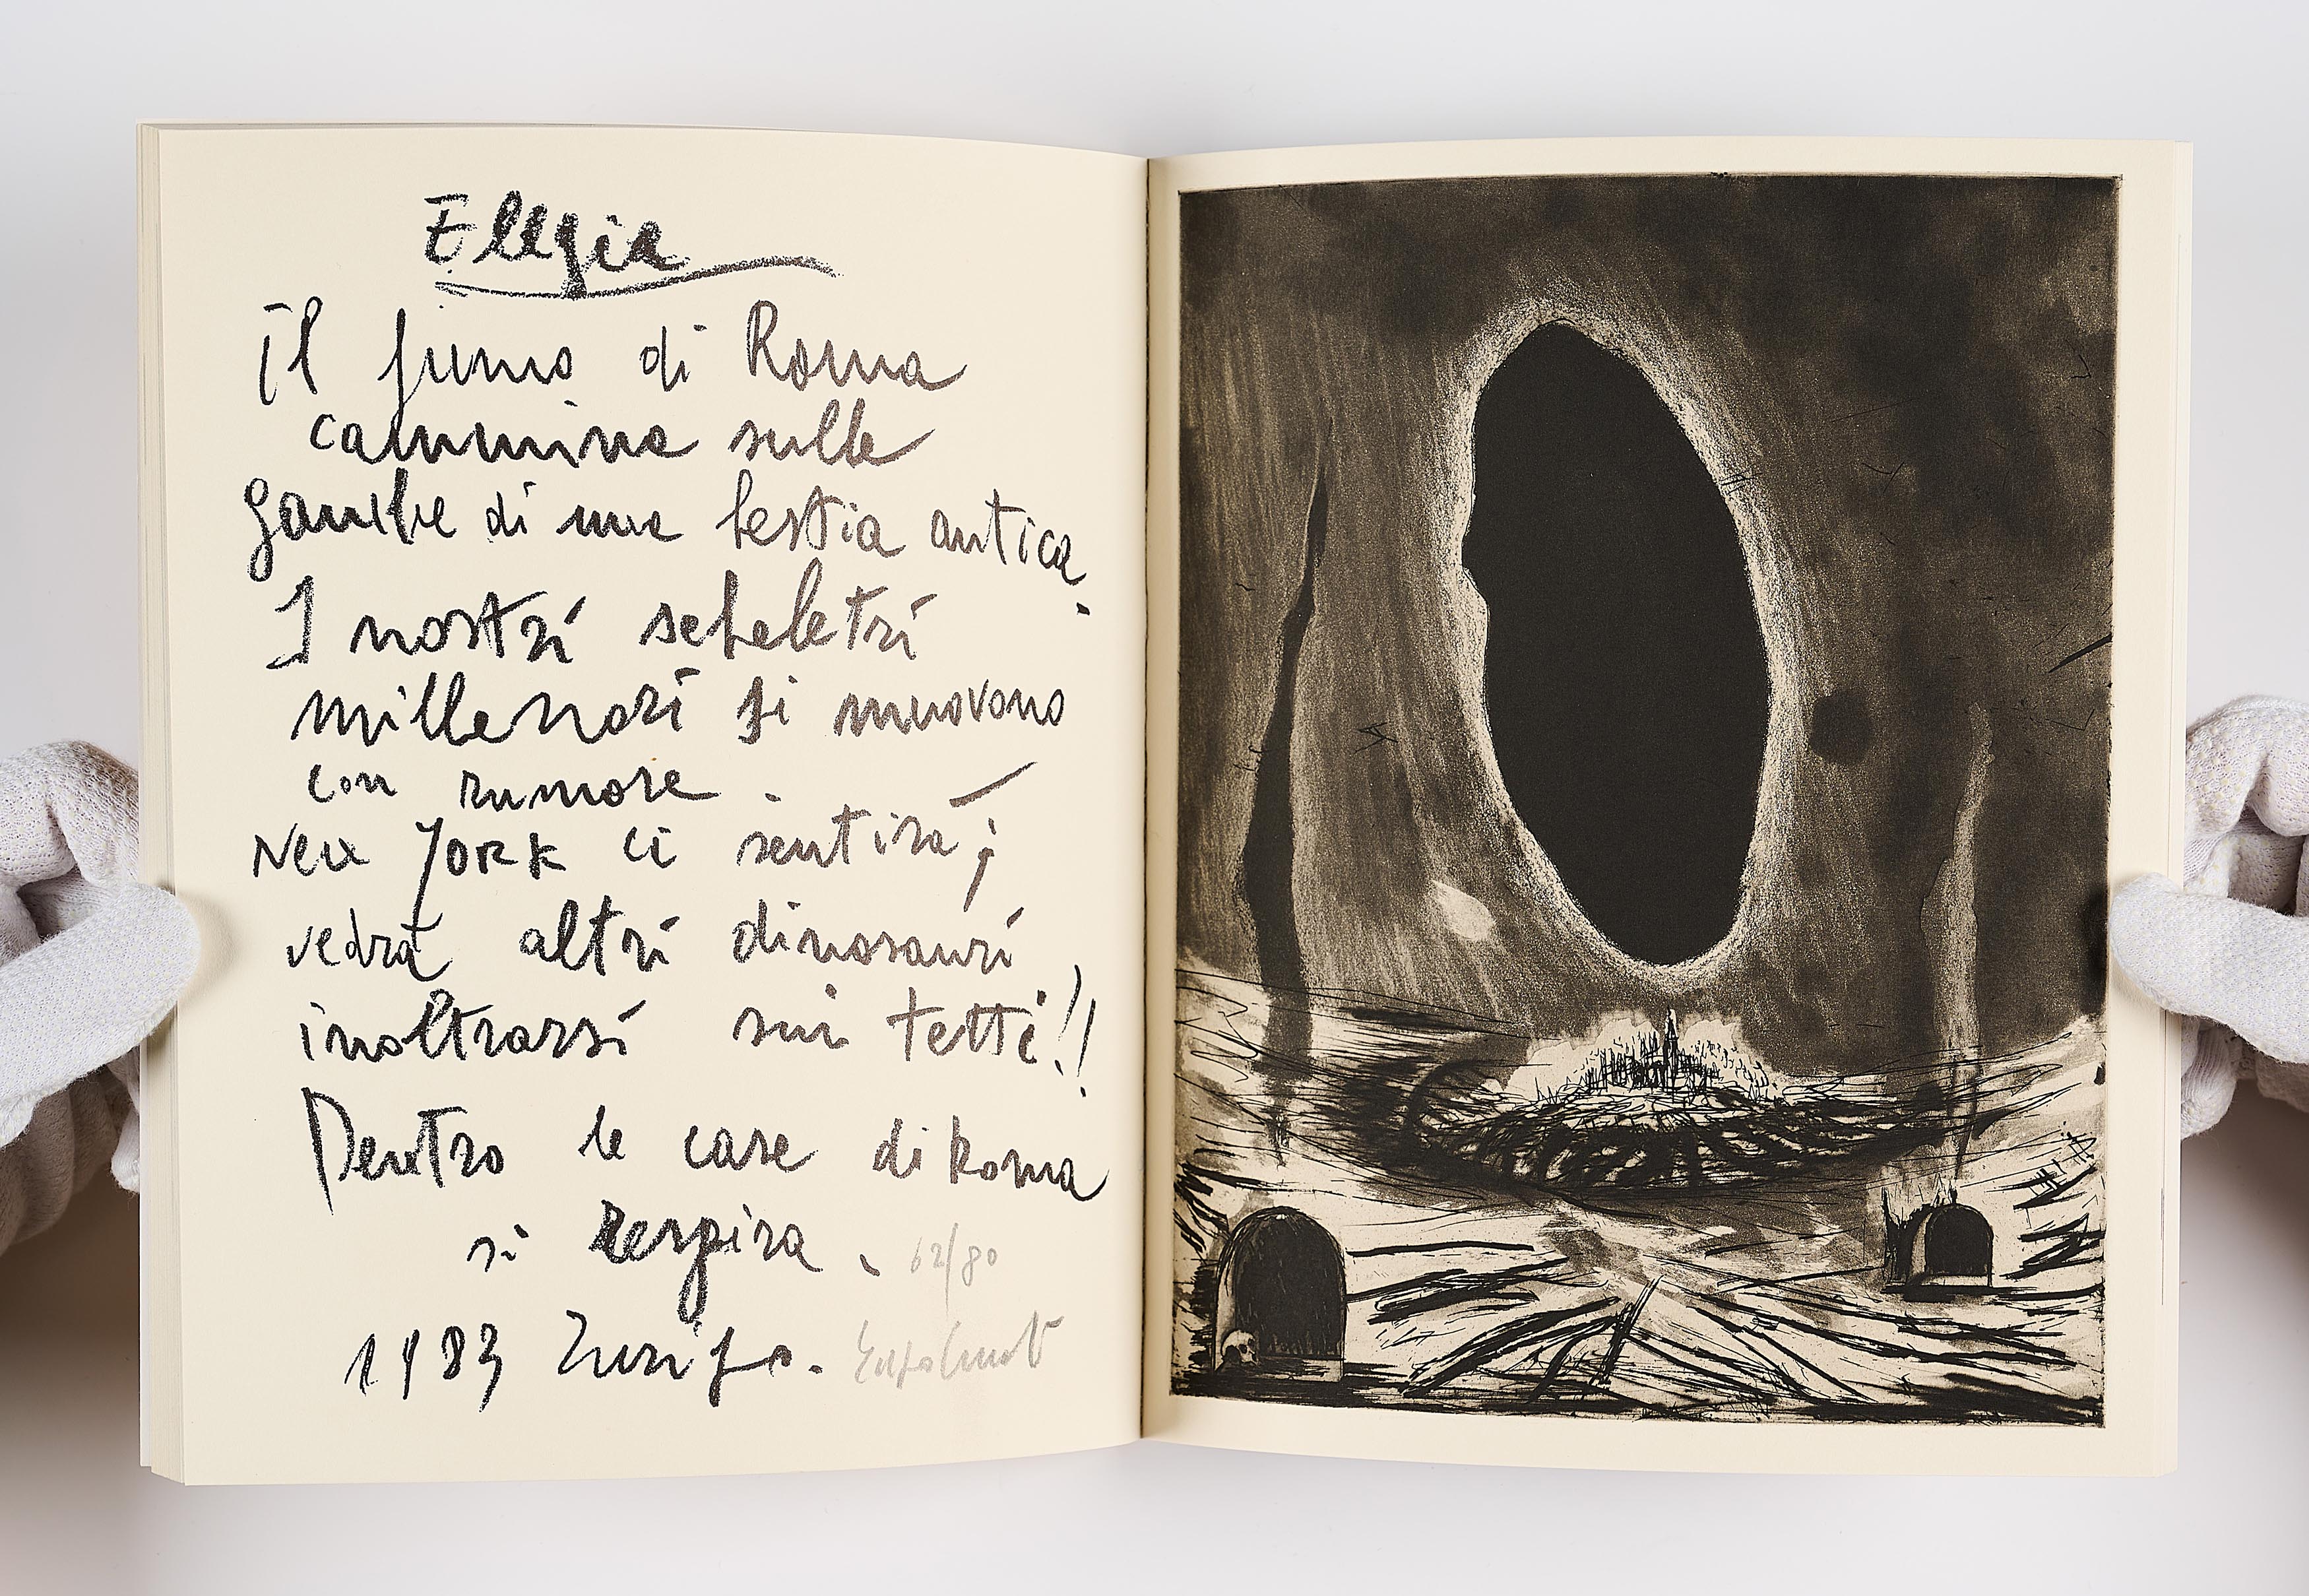 Elegia
Il fumo di Roma
cammina sulle
gambe di una bestia antica.
I nostri scheletri
millenari si muovono
con rumore.
New York ci sentirà;
vedrà altri dinosauri
inoltrarsi sui tetti!!
Dentro le case di Roma
si respira.
62/80
1983 Zurigo.